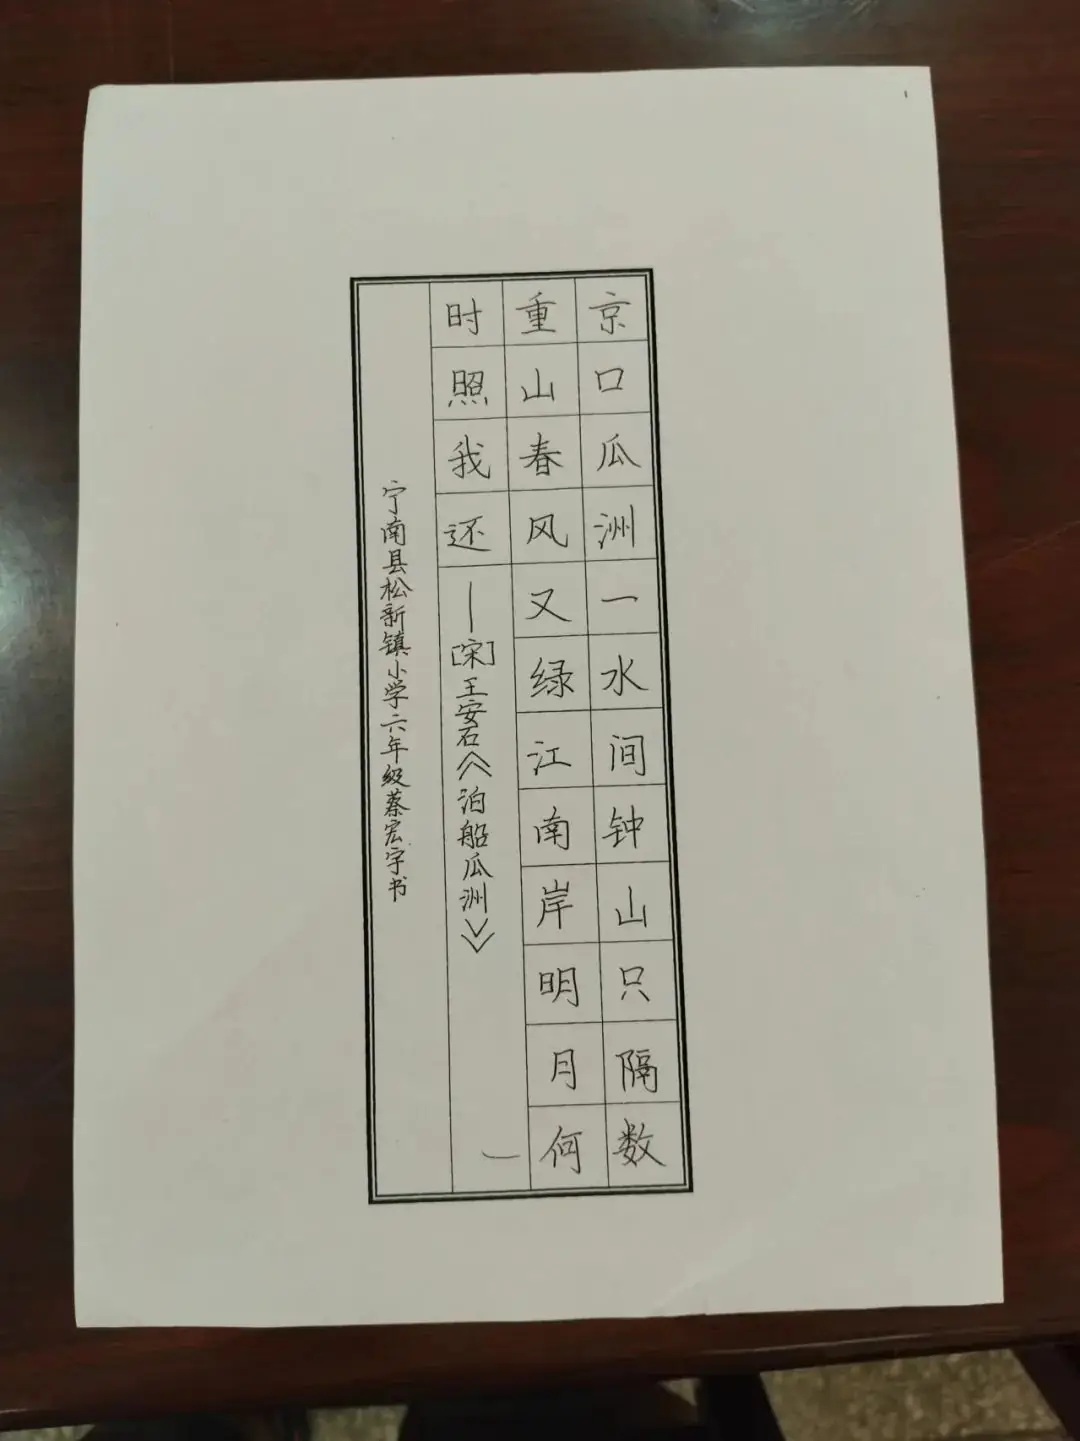 京口瓜洲一水间钟山只隔数
重山春风又绿江南岸明月何
时照我还——[宋]王安石《泊船瓜洲》
宁南县松新镇小学六年级蔡宏宇书